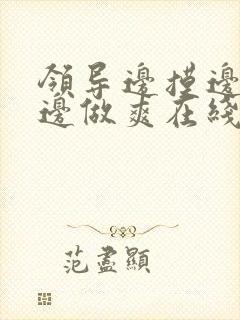 領导邊摸邊
邊做爽在綫
范盡顯